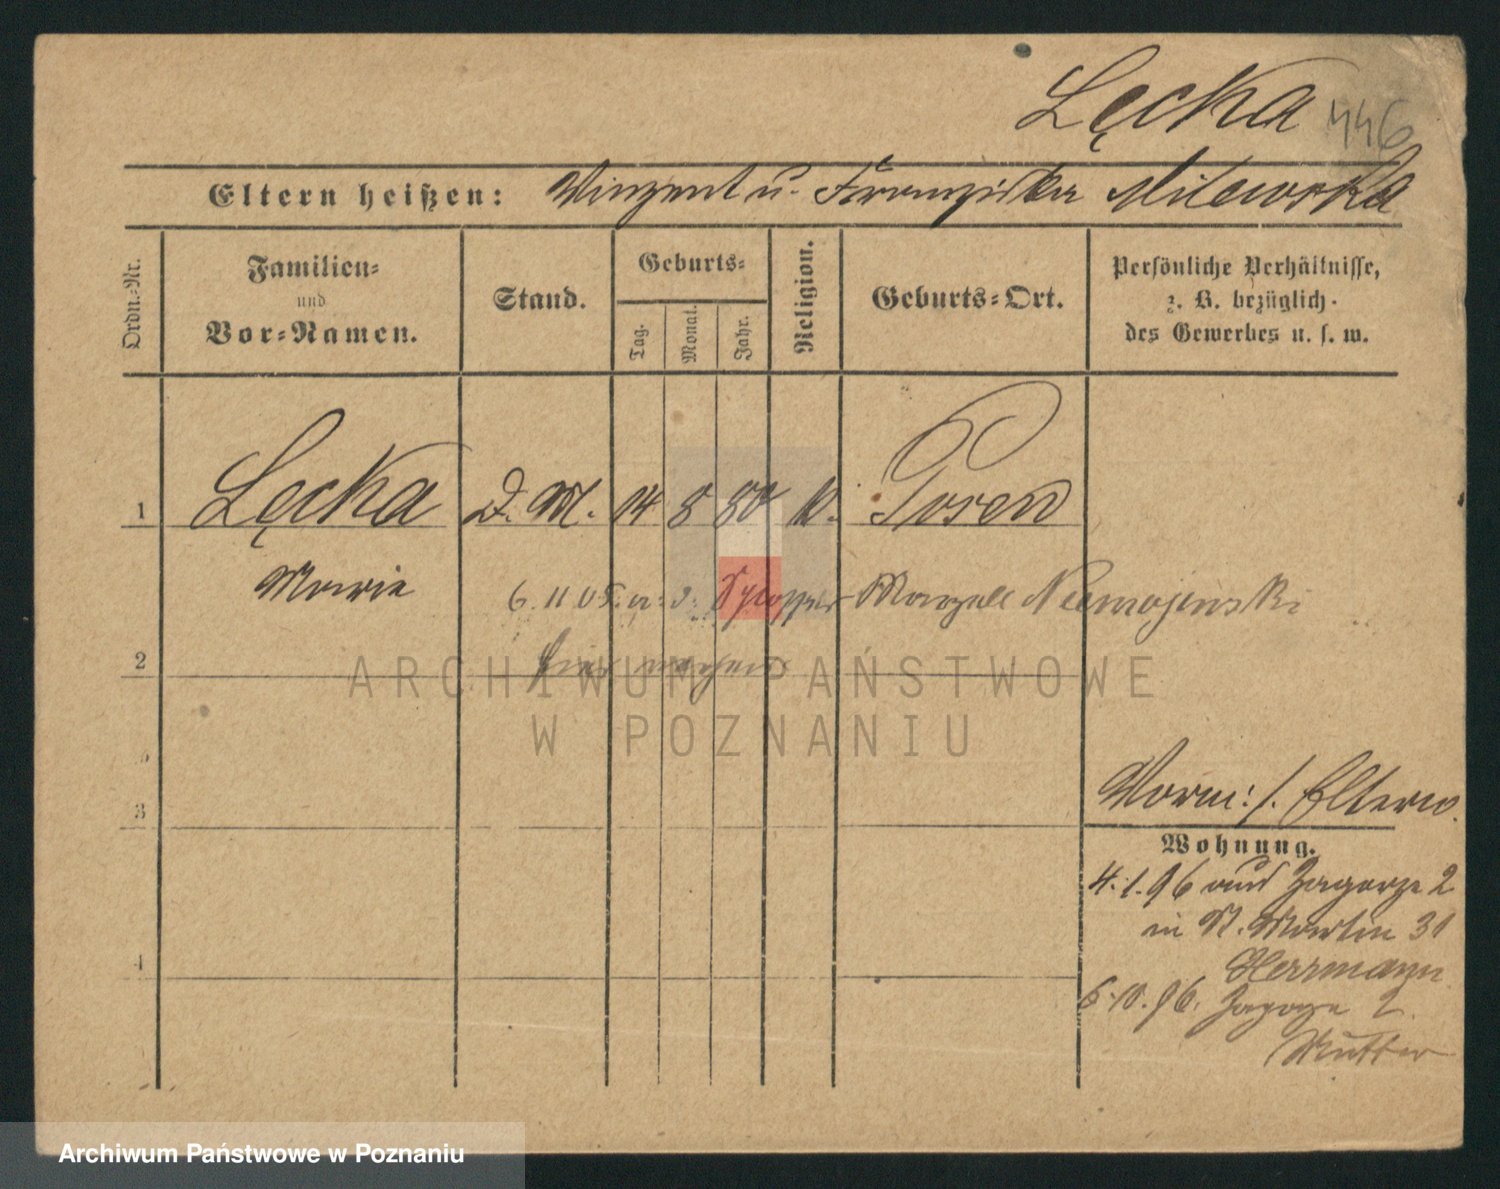 Lęcka 446
Eltern heißen: Vinzent u. Franziska Milewska
Ordn.-Nr.
Familien-
und
Vor-Namen.
Stand.
Geburts-
Tag.
Monat.
Jahr.
Religion.
Geburts-Ort.
Persönliche Verhältnisse,
z. B. bezüglich
des Gewerbes u. s. w.
1 Lęcka D. M. 14 8 80 k. Posen
Marie
6. 11 05. a. d. Schlosser Marzell Niemojewski
2 hier
3
Vorm: s. Eltern.
Wohnung.
4. 1. 96 aus Zagorze 2
in St. Martin 31
Herrmann
4
6. 10. 96. Zagorze 2.
Mutter
ARCHIWUM PAŃSTWOWE
W POZNANIU
Archiwum Państwowe w Poznaniu